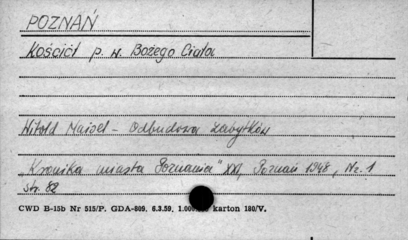 POZNAŃ
Kościół p. w. Bożego Ciała
Witold Maisel - Odbudowa zabytków
„Kronika miasta Poznania" XXI, Poznań 1948, Nr. 1
str. 82
CWD B-15b Nr 515/P. GDA-809. 6.3.59. 1.000 karton 180/V.